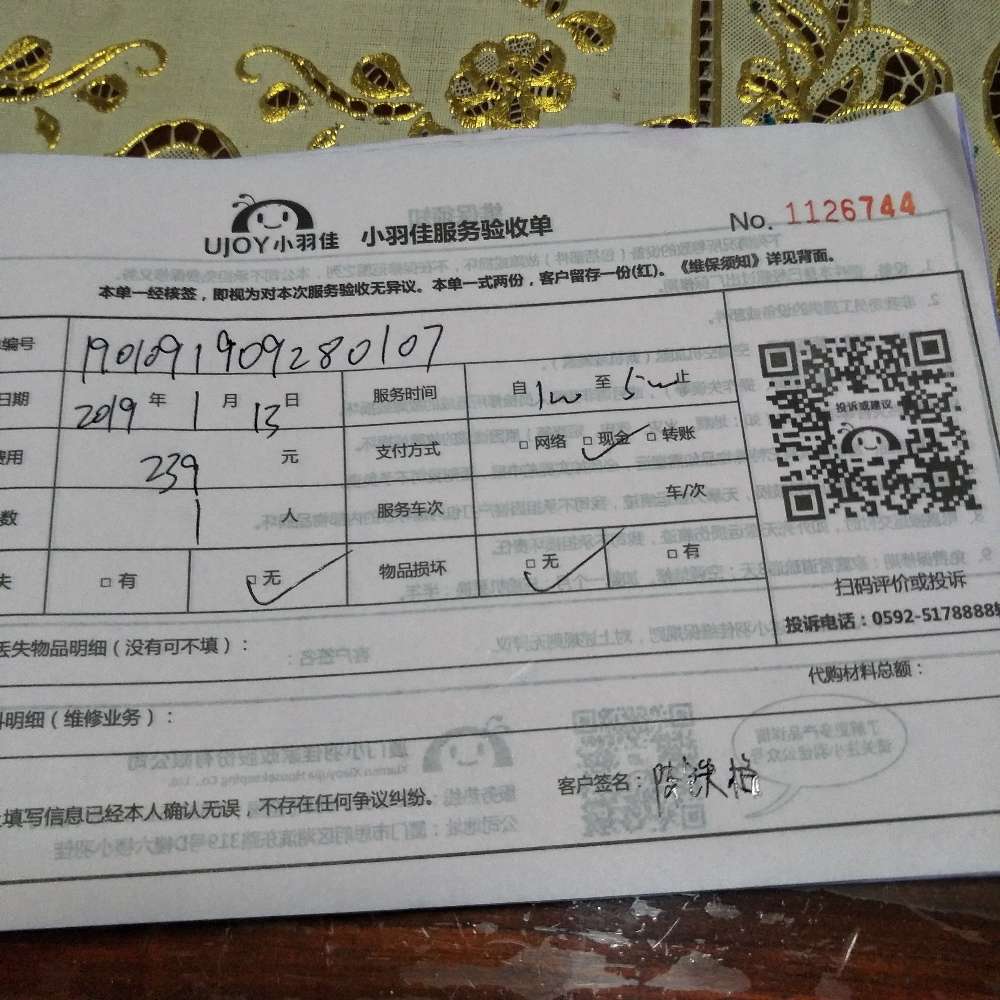 UJOY小羽佳 小羽佳服务验收单 No. 1126744
本单一经核签，即视为对本次服务验收无异议。本单一式两份，客户留存一份(红)。《维保须知》详见背面。
编号 1901091909280107
日期 2019 年 1 月 13 日 服务时间 自 至 止
费用 239 元 支付方式 □ 网络 □ 现金 □ 转账
数 1 人 服务车次 车/次
失 □ 有 □ 无 物品损坏 □ 无 □ 有
投诉或建议
扫码评价或投诉
投诉电话：0592-5178888
丢失物品明细（没有可不填）：
代购材料总额：
料明细（维修业务）：
客户签名：
上填写信息已经本人确认无误，不存在任何争议纠纷。